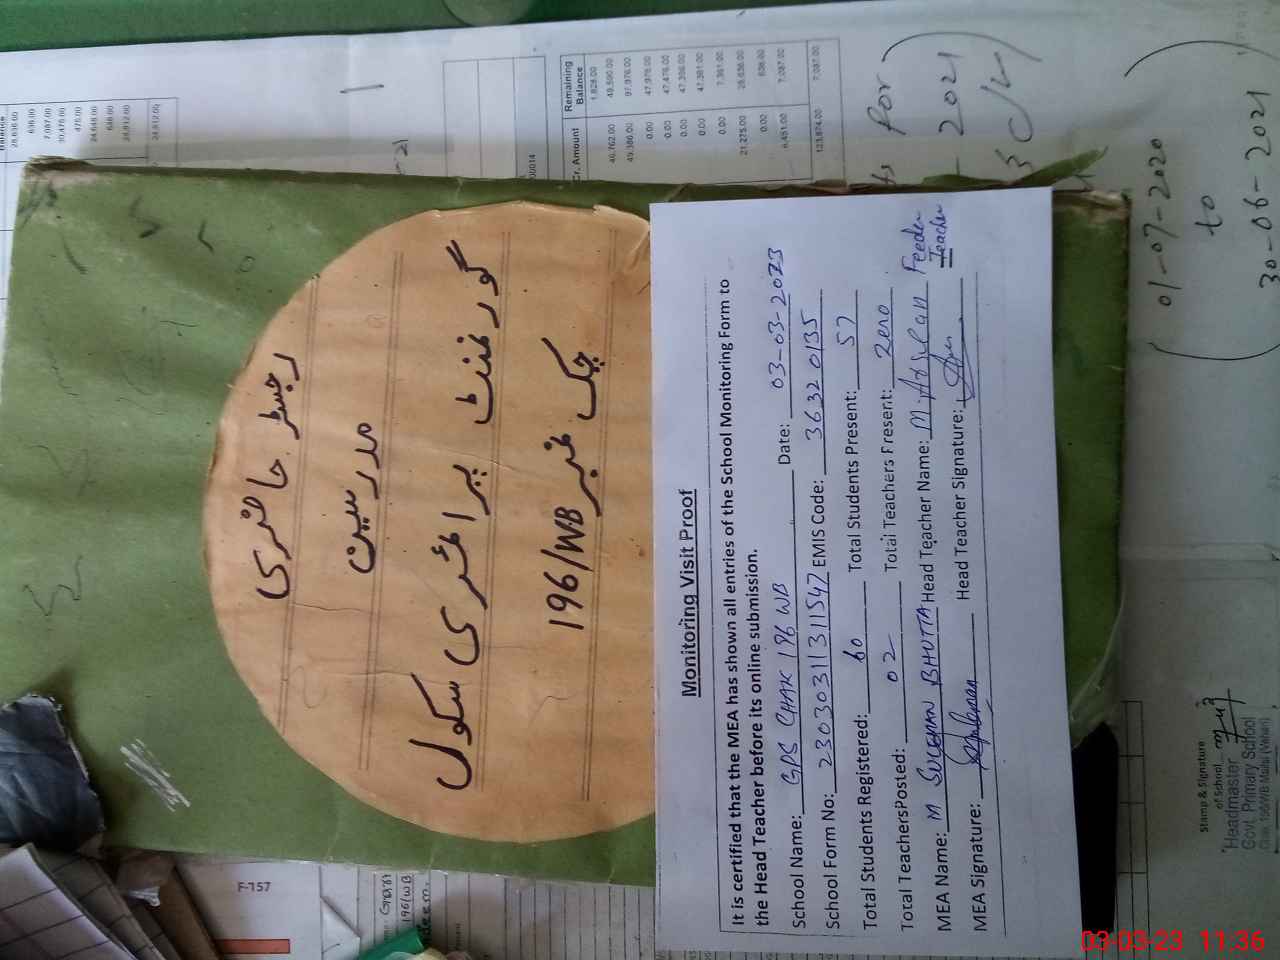 رجسٹر حاضری
مدرسین
گورنمنٹ پرائمری سکول
چک نمبر 196/WB
Monitoring Visit Proof
It is certified that the MEA has shown all entries of the School Monitoring Form to
the Head Teacher before its online submission.
School Name: GPS CHAK 196 WB Date: 03-03-2023
School Form No: 2303031131 1547 EMIS Code: 36320135
Total Students Registered: 60 Total Students Present: 57
Total TeachersPosted: 02 Total Teachers Present: Zero
MEA Name: M SULEMAN BHUTTA Head Teacher Name: M Arslan Feeder Teacher
MEA Signature: Head Teacher Signature:
Cr. Amount Remaining Balance
1,828.00
46,762.00 49,590.00
0.00 47,976.00
0.00 47,476.00
0.00 47,396.00
0.00 47,361.00
0.00 7,361.00
21,275.00 28,636.00
0.00 636.00
6,451.00 7,087.00
123,874.00 7,087.00
28,636.00
636.00
7,087.00
30,476.00
476.00
24,648.00
648.00
24,912.00
24,912.00
00014
-21
for
- 2021
01-07-2020
to
30-06-2021
F-157
196/WB
Stamp & Signature
of School
Headmaster
Govt. Primary School
Chak, 196/WB Mailsi (Vehari)
03-03-23 11:36